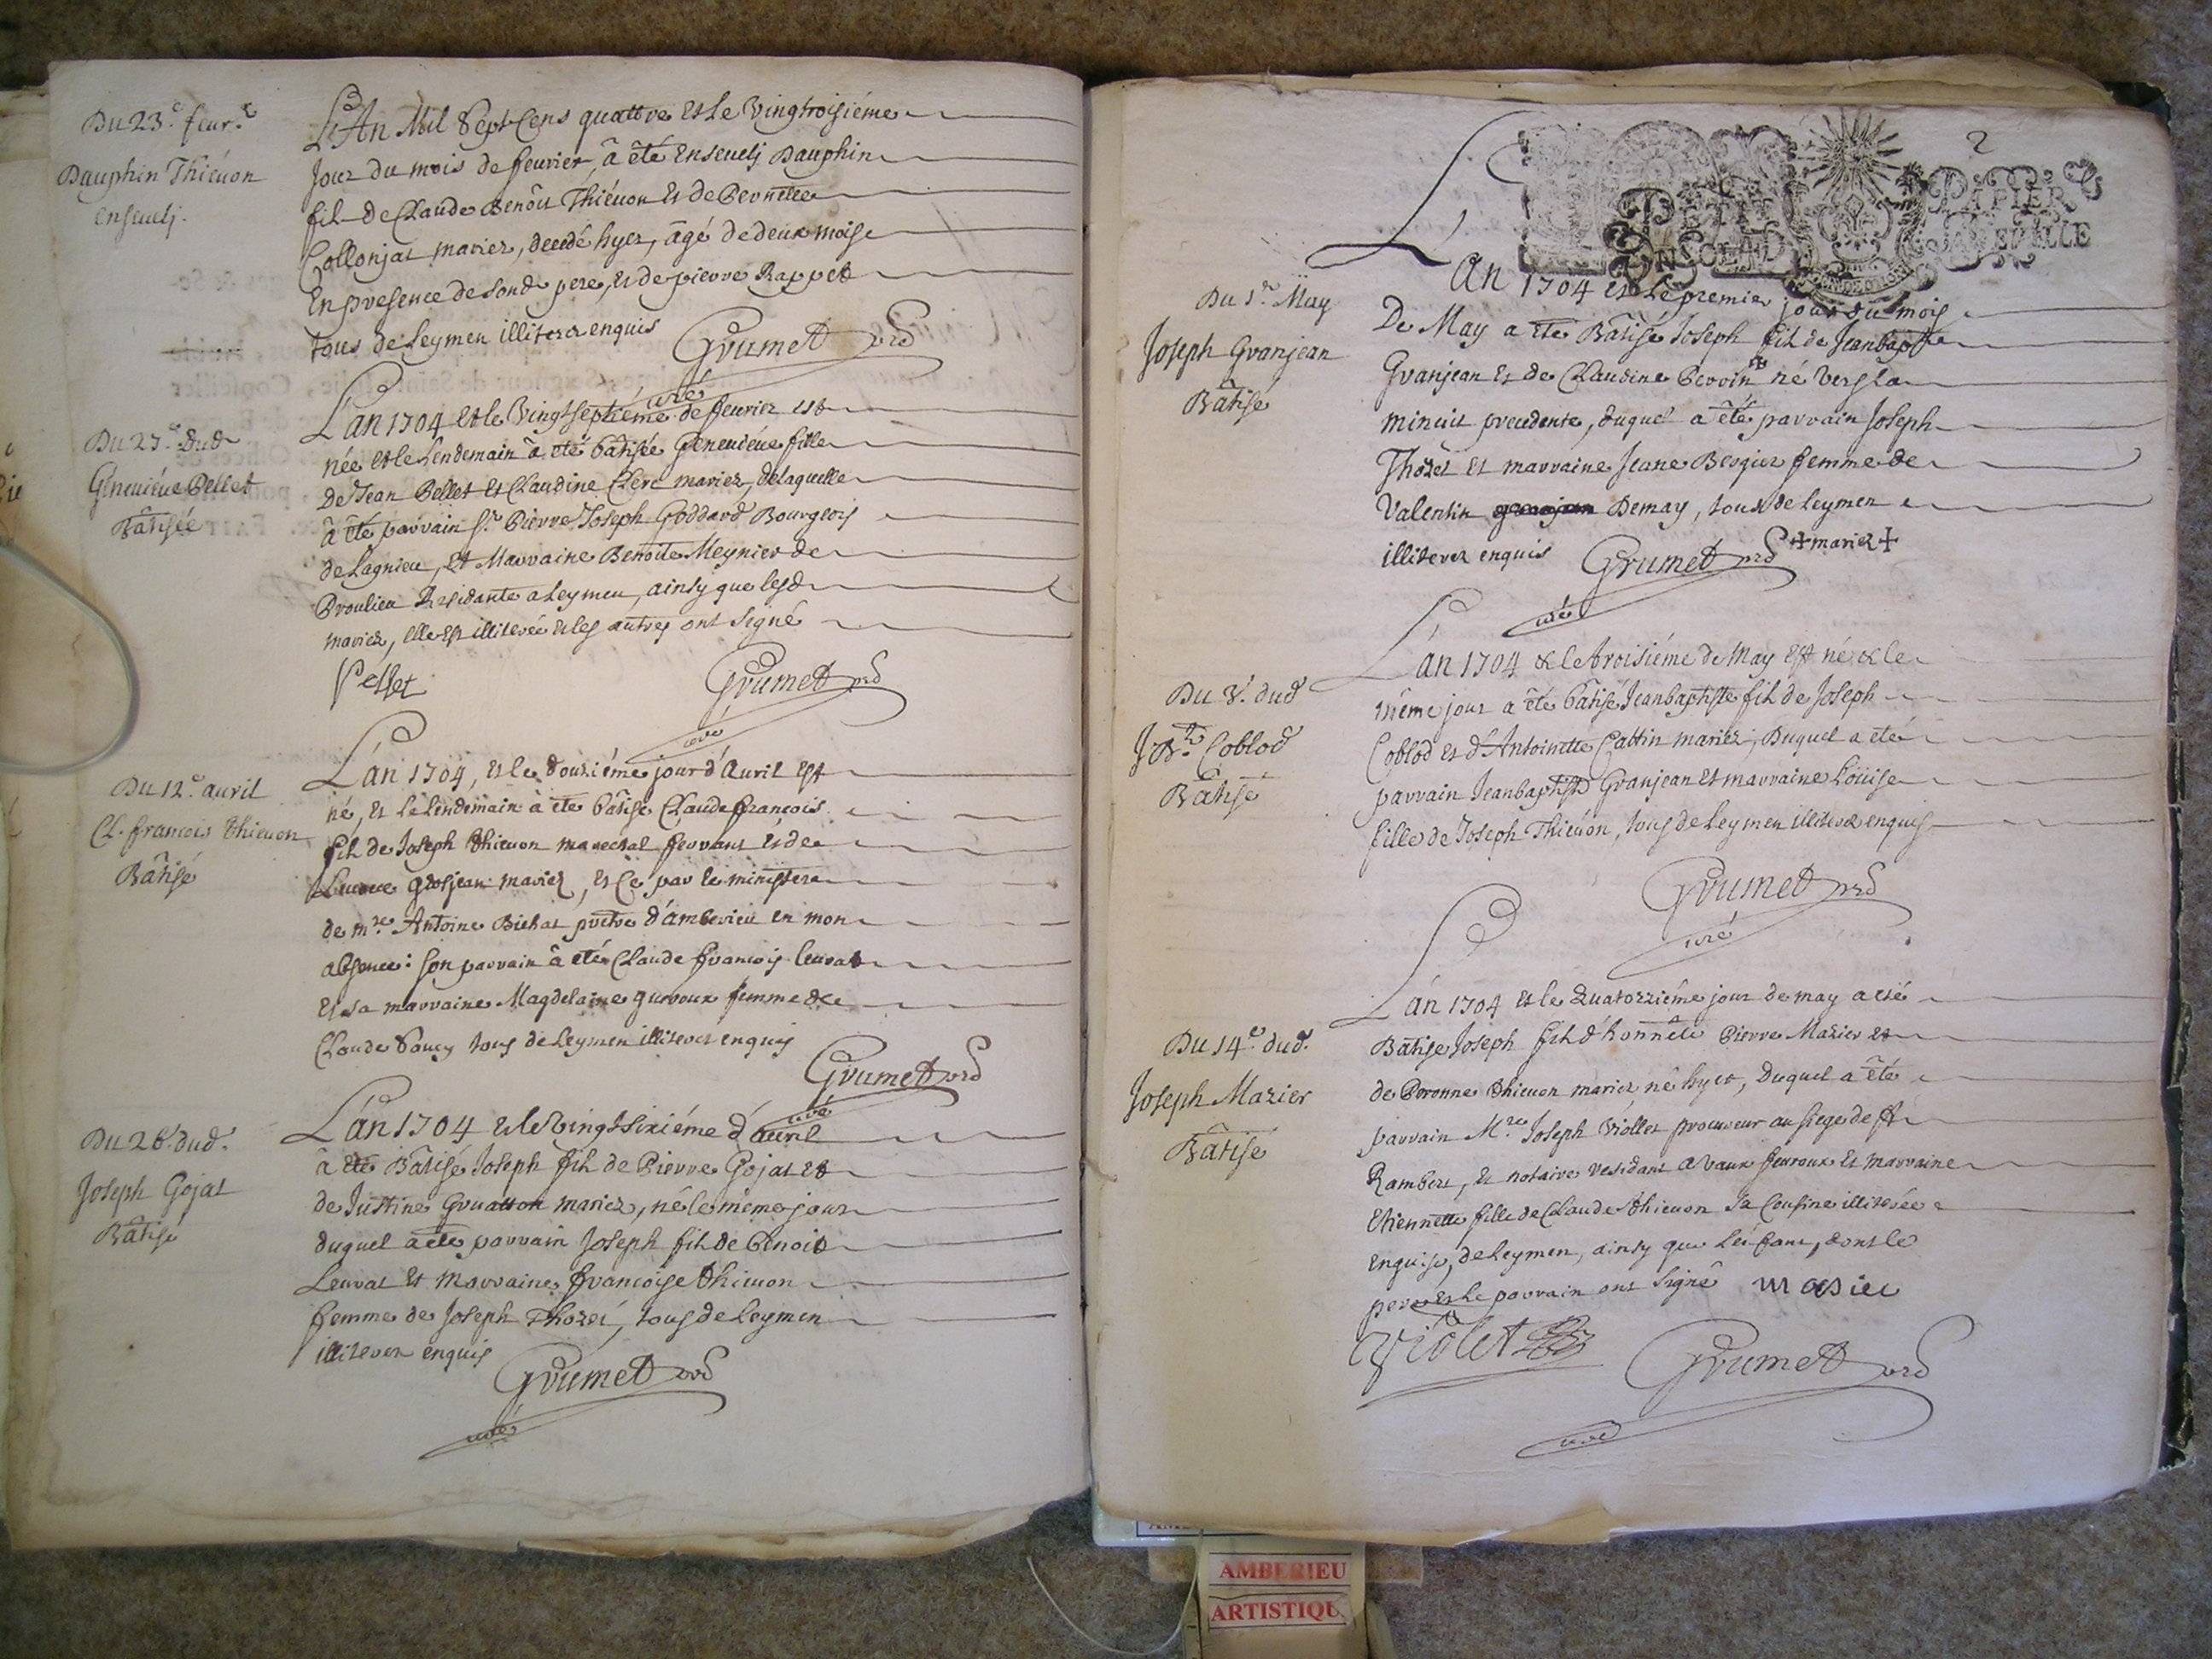 Du 23.e feur.r
Dauphin Thiéuon
enseueli.
L'An Mil Sept Cens quattre et Le Vingtroisiéme
Jour du mois de feurier, â êté Enseueli Dauphin
fil de Claude Benôit Thiéuon et de Pernette
Collonjat mariez, decedé hyer, âgé de deux mois
En presence de sond. pere, et de pierre Rappet
tous de Leymen illiterez enquis
Grumet prd
curé
Du 27.e dud
Geneuiéue Pellet
Bâtisée
L'an 1704 et le Vingtseptiéme de feurier est
née et le Lendemain â eté bâtisée Geneuiéue fille
de Jean Pellet et Claudine Clerc mariez, de laquelle
â êté parrain S.r Pierre Joseph Goddard Bourgeois
de Lagnieu, et Marraine Benoite Meynier de
Proulieu Residante a Leymen, ainsy que lesd
mariez, elle est illiterée et les autres ont signé
Pellet
Grumet prd
curé
Du 12.e auril
Cl. francois Thieuon
Bâtisé
L'an 1704, et le douziéme jour d'Auril est
né, et Le Lendemain â eté bâtisé Claude francois
fil de Joseph Thieuon marechal ferrant et de
grosjean mariez, et Ce par le ministere
de m.re Antoine Bichat prêtre d'amberieu en mon
absence: son parrain â eté Claude francois leurat
et sa marraine Magdelaine guroux femme de
Claude Soucy tous de Leymen illiterez enquis
Grumet prd
curé
Du 26.e dud.
Joseph Gojat
Bâtisé
L'an 1704 et le Vingtsixiéme d'auril
â eté Bâtisé Joseph fil de Pierre Gojat et
de Justine Gruatton mariez, né le même jour
duquel a eté parrain Joseph fil de Benoit
Leurat et Marraine françoise Thieuon
femme de Joseph Thozei, tous de Leymen
illiterez enquis
Grumet prd
curé
2
PETIT PAPIER
EN SOL LA FEUILLE
Du 1.er May
Joseph Granjean
Bâtisé
L'An 1704 et Le premier jour du mois
De May a eté Bâtisé Joseph fil de Jeanbapte
Granjean et de Claudine Perrin ++ né Vers la
minuit precedente, duquel a êté parrain Joseph
Thozet et marraine Jeane Bergier femme de
Valentin Demay, tous de Leymen
illiterez enquis
Grumet prd
++ mariez +
curé
Du 3.e dud
J B.te Coblod
Bâtisé
L'an 1704 & le troisiéme de May est né & le
même jour a êté bâtisé Jeanbaptiste fil de Joseph
Coblod et d'Antoinette Cattin mariez, Duquel a eté
parrain Jeanbaptiste Granjean et marraine Loüise
fille de Joseph Thieuon, tous de Leymen illiterez enquis
Grumet prd
curé
Du 14.e dud.
Joseph Mazier
Bâtisé
L'an 1704 et le Quatorziéme jour de may a eté
Bâtisé Joseph fil d'honnête Pierre Mazier et
de Peronne Thieuon mariez né hyer, Duquel a êté
parrain M.re Joseph Viollet procureur au siege de St
Rambert, et notaire residant a Vaux feuroux et marraine
Etiennette fille de Claude Thieuon sa Cousine illiterée
enquise, de Leymen, ainsy que Les fant, dont le
pere et Le parrain ont signé masier
Violet
Grumet prd
curé
AMBERIEU
ARTISTIQU